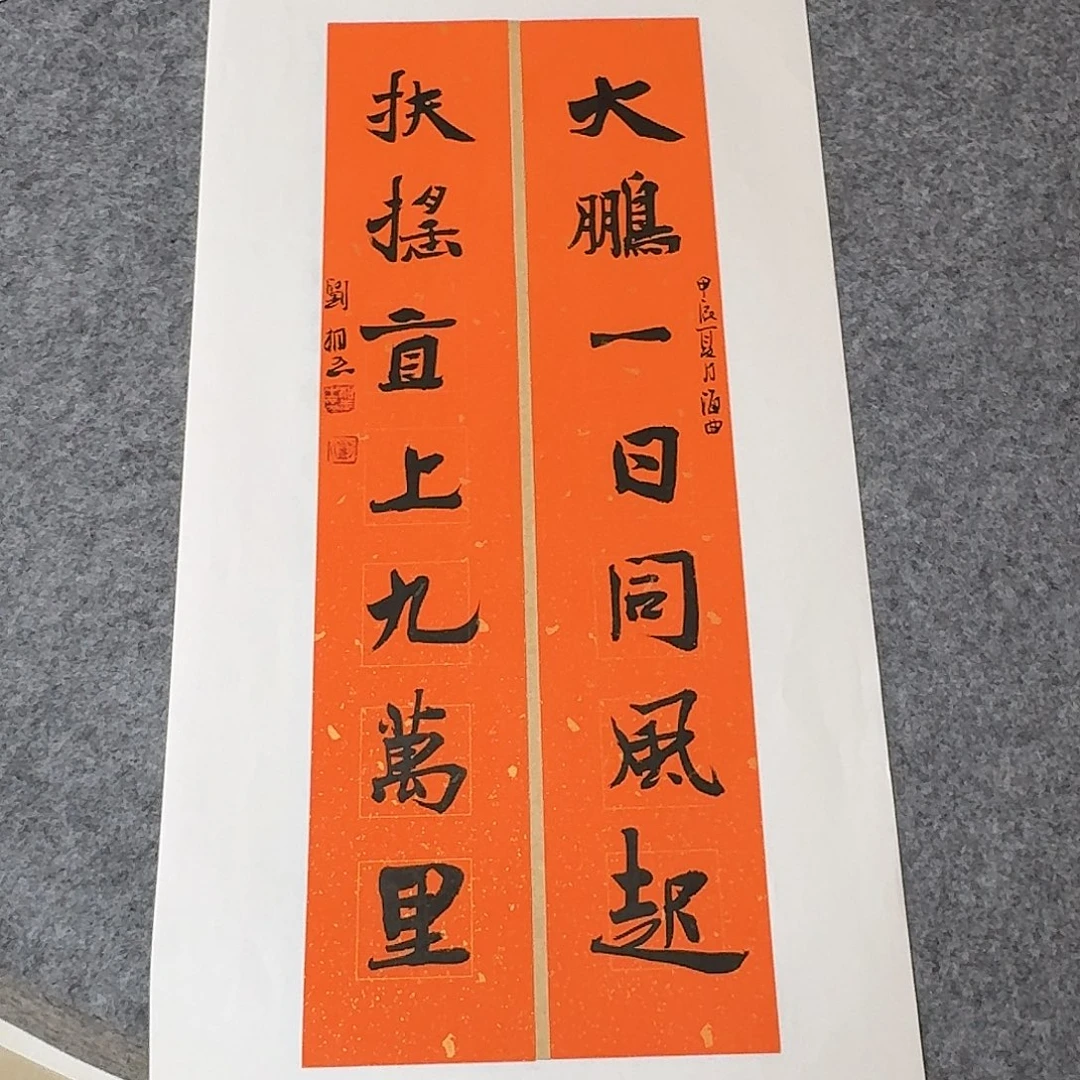 大鵬一日同風起
甲辰夏月海曲
扶搖直上九萬里
劉相